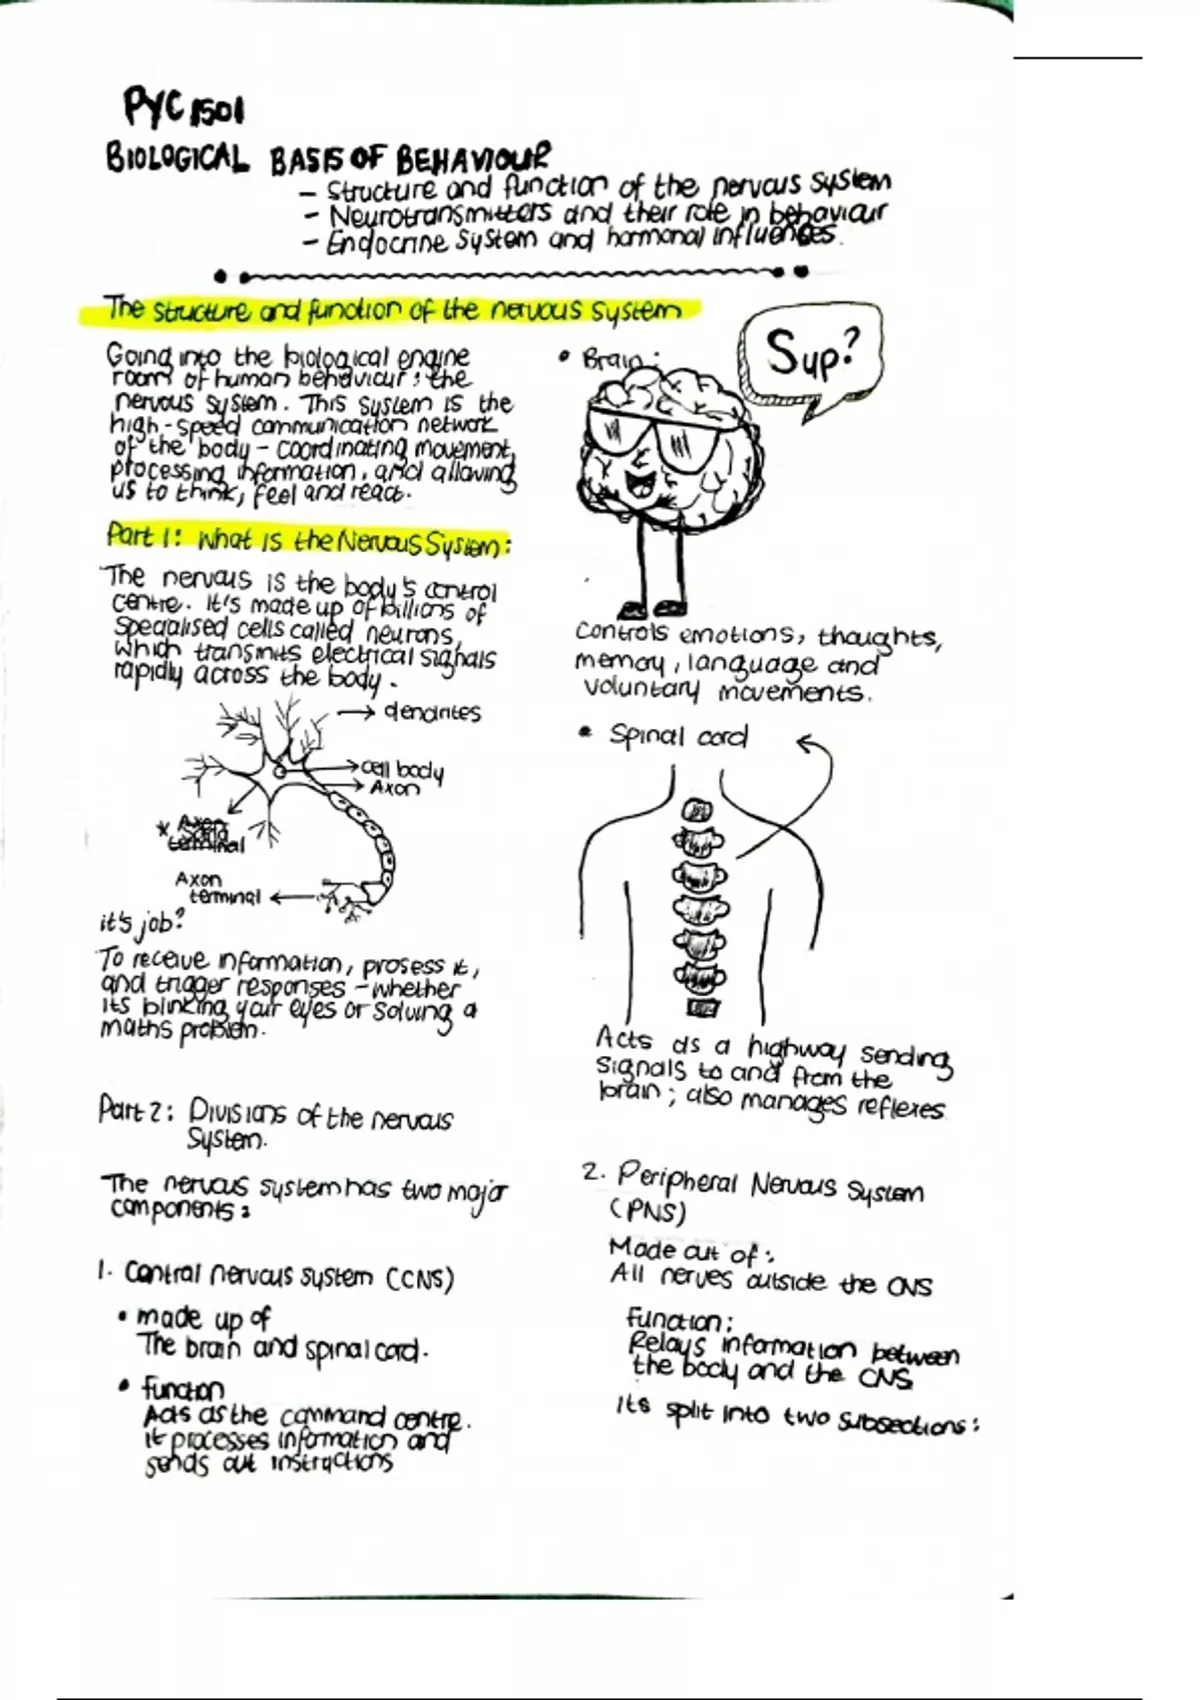 PYC1501
BIOLOGICAL BASIS OF BEHAVIOUR
- Structure and function of the nervous system
- Neurotransmitters and their role in behaviour
- Endocrine System and hormonal influences.
The structure and function of the nervous system
Going into the biological engine
room of human behaviour: the
nervous system. This system is the
high-speed communication network
of the body - coordinating movement,
processing information, and allowing
us to think, feel and react.
Part 1: What is the Nervous System:
The nervous is the body's control
centre. It's made up of billions of
specialised cells called neurons,
which transmits electrical signals
rapidly across the body.
dendrites
cell body
Axon
Axon
terminal
it's job?
To receive information, prosess it,
and trigger responses - whether
its blinking your eyes or solving a
maths problem.
Part 2: Divisions of the nervous
System.
The nervous system has two major
components:
1. Central nervous system (CNS)
• made up of
The brain and spinal cord.
• function
Acts as the command centre.
it processes information and
sends out instructions
• Brain:
Sup?
Controls emotions, thoughts,
memory, language and
voluntary movements.
• Spinal cord
Acts as a highway sending
signals to and from the
brain; also manages reflexes
2. Peripheral Nervous System
(PNS)
Made out of:
All nerves outside the CNS
Function:
Relays information between
the body and the CNS
Its split into two subsections: